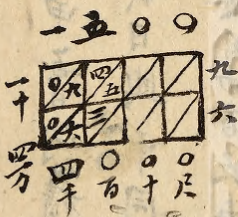 一五〇〇
一十 〇九 四五 九
〇六 三 六
四万 四千 〇百 〇十 〇尺